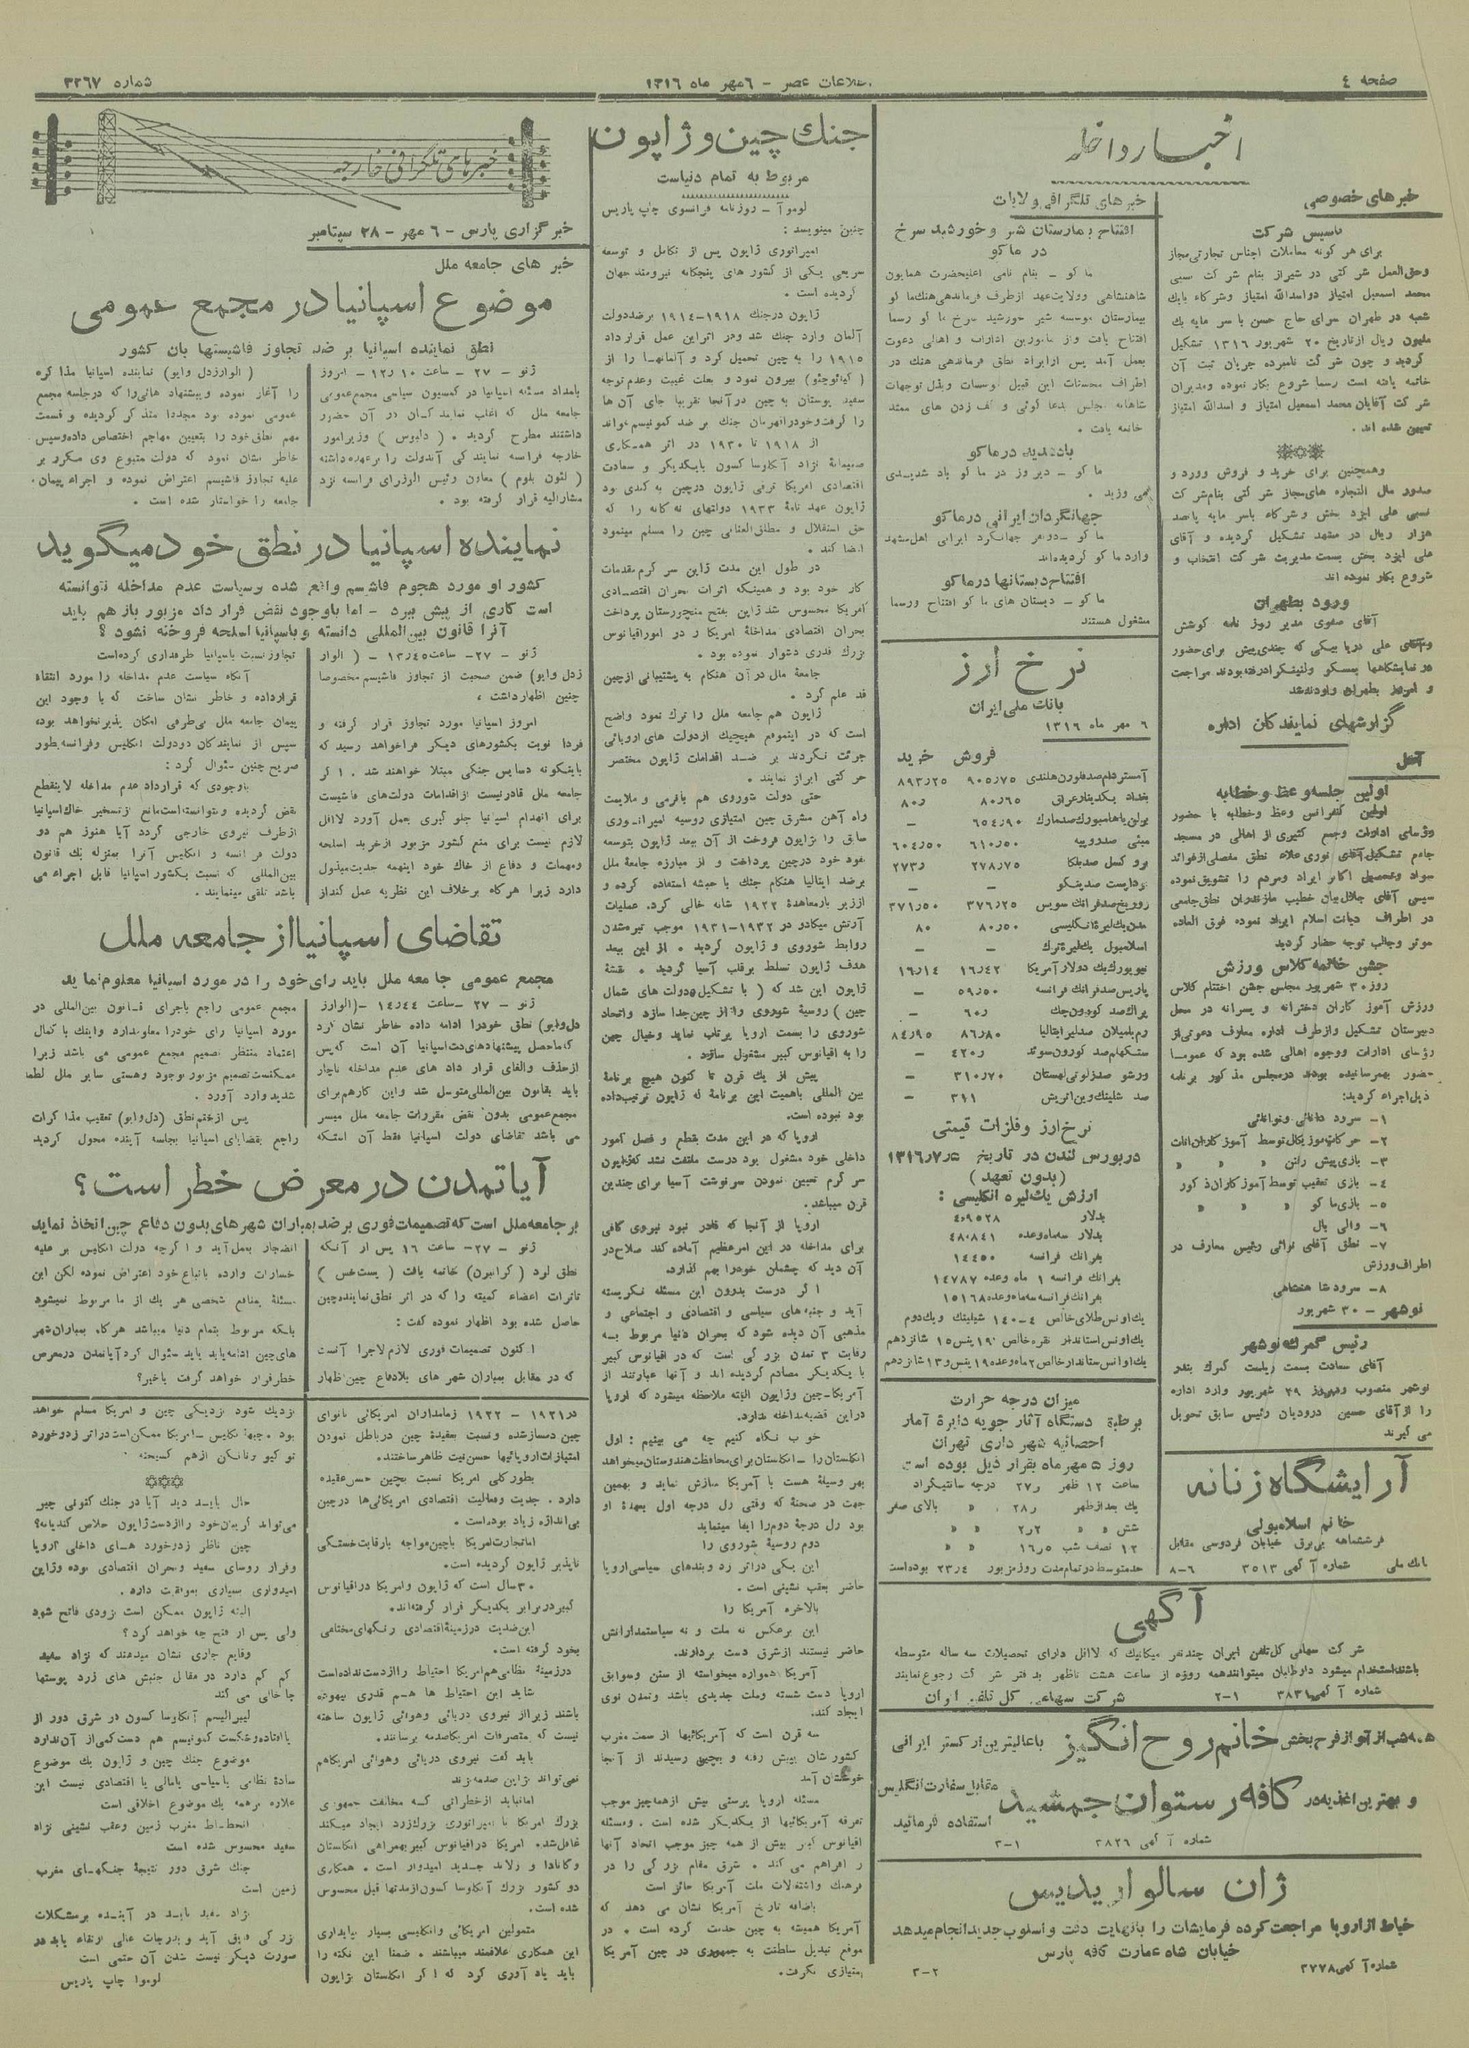 صفحه ٤
اطلاعات عصر - ٦ مهر ماه ١٣١٦
شماره ٣٢٦٧
اخبار داخله
خبرهای خصوصی
تاسیس شرکت
برای هر گونه معاملات اجناس تجارتی مجاز
وحق‌العمل شرکتی در شیراز بنام شرکت نسبی
محمد اسمعیل امتیاز و اسدالله امتیاز وشرکاء بابک
شعبه در طهران سرای حاج حسن با سرمایه یک
ملیون ریال ازتاریخ ٢٠ شهریور ١٣١٦ تشکیل
گردید و چون شرکت نامبرده جریان ثبت آن
خاتمه یافته است رسما شروع بکار نموده ومدیران
شرکت آقایان محمد اسمعیل امتیاز و اسدالله امتیاز
تعیین شده اند.
وهمچنین برای خرید و فروش وورد و
صدور مال التجاره های مجاز شرکتی بنام شرکت
نسبی علی ایزد بخش وشرکاء باسرمایه پانصد
هزار ریال در مشهد تشکیل گردیده و آقای
علی ایزد بخش بسمت مدیریت شرکت انتخاب و
شروع بکار نموده اند
ورود بطهران
آقای صفوی مدیر روزنامه کوشش
وآقای علی دریا بیگی که چندی پیش برای حضور
در نمایشگاهها بمسکو ولنینگراد رفته بودند مراجعت
و امروز بطهران وارد شدند
گزارشهای نمایندگان اداره
آمل
اولین جلسه وعظ وخطابه
اولین کنفرانس وعظ وخطابه با حضور
رؤسای ادارات وجمع کثیری از اهالی در مسجد
جامع تشکیل آقای نوری علاء نطق مفصلی از فوائد
سواد وتحصیل اکابر ایراد ومردم را تشویق نموده
سپس آقای جلال بیان خطیب مازندران نطق جامعی
در اطراف دیانت اسلام ایراد نموده فوق العاده
موثر وجالب توجه حضار گردید
جشن خاتمه کلاس ورزش
روز ٣٠ شهریور مجلس جشن اختتام کلاس
ورزش آموزگاران دخترانه و پسرانه در محل
دبیرستان تشکیل وازطرف اداره معارف دعوتی از
رؤسای ادارات ووجوه اهالی شده بود که عموما
حضور بهمرسانیده بودند در مجلس مذکور برنامه
ذیل اجراء گردید:
٣- بازی پیش رفتن » » »
٤- بازی تعقیب توسط آموزگاران ذکور
٥- بازی ماکو » » »
٦- والی بال
٧- نطق آقای نوائی رئیس معارف در
اطراف ورزش
٨- سرود شاهنشاهی
نوشهر - ٣٠ شهریور
رئیس گمرک نوشهر
آقای سعادت بسمت ریاست گمرک بندر
نوشهر منصوب وصبح روز ٢٩ شهریور وارد اداره
را از آقای حسین درودیان رئیس سابق تحویل
می گیرند
آرایشگاه زنانه
خانم اسلامبولی
خیابان فردوسی مقابل
بانک ملی شماره آگهی ٣٥١٣ ٦-٨
خبرهای تلگرافی ولایات
افتتاح بیمارستان شیر وخورشید سرخ
در ماکو
ماکو - بنام نامی اعلیحضرت همایون
شاهنشاهی وولایتعهد ازطرف فرماندهی هنگ ماکو
بیمارستان موسسه شیر خورشید سرخ ماکو رسما
افتتاح یافت واز مامورین ادارات و اهالی دعوت
بعمل آمد پس ازایراد نطق فرماندهی هنگ در
اطراف محسنات این قبیل موسسات وبذل توجهات
شاهانه مجلس بدعا گوئی و کف زدن های ممتد
خاتمه یافت.
باد شدید در ماکو
ماکو - دیروز در ماکو باد شدیدی
می وزید.
جهانگردان ایرانی در ماکو
ماکو - دونفر جهانگرد ایرانی اهل مشهد
وارد ماکو گردیده‌اند
افتتاح دبستانها در ماکو
ماکو - دبستان های ماکو افتتاح ورسما
مشغول هستند
نرخ ارز
بانک ملی ایران
٦ مهر ماه ١٣١٦
فروش خرید
آمستردام صد فلورن هلندی ٩٠٥٫٧٥ ٨٩٣٫٢٥
بغداد یکدینار عراقی ٨٠٫٦٥ ٨٠٫
برلن یا هامبورک صد مارک ٦٥٤٫٩٠ -
بمبئی صد روپیه ٦١٠٫٥٠ ٦٠٤٫٥٠
بروکسل صد بلگا ٢٧٨٫٧٥ ٢٧٣٫
بوداپست صد پنگو - -
زوریخ صد فرانک سویس ٣٧٦٫٢٥ ٣٧١٫٥٠
لندن یک لیره انگلیسی ٨٠٫٥٠ ٨٠
اسلامبول یک لیره ترک - -
نیویورک یک دولار آمریکا ١٦٫٤٢ ١٦٫١٤
پاریس صد فرانک فرانسه ٥٩٫٥٠ -
پراک صد کورون چک ٦٠٫ -
رم یا میلان صد لیر ایتالیا ٨٦٫٨٠ ٨٤٫٩٥
ستکهلم صد کورون سوئد ٤٢٠٫ -
ورشو صد زلوتی لهستان ٣١٠٫٧٠ -
صد شلینک وین اتریش ٣١١ -
نرخ ارز وفلزات قیمتی
در بورس لندن در تاریخ ١٣١٦٫٧٫٥
(بدون تعهد)
ارزش یک لیره انگلیسی:
بدلار ٤٫٩٥٢٨
بدلار سه ماه وعده ٤٨٠٨٤١
بفرانک فرانسه ١٤٤٥٠
بفرانک فرانسه ١ ماه وعده ١٤٧٨٧
بفرانک فرانسه سه ماه وعده ١٥١٦٨
یک اونس طلای خالص ٤-١٤٠ شیلینک ویک دوم
یک اونس استاندار نقره خالص ١٩ پنس ١٥ شانزدهم
یک اونس استاندار خالص ٢ ماه وعده ١٩ پنس و١٣ شانزدهم
میزان درجه حرارت
بر طبق دستگاه آثار جویه دایره آمار
احصائیه شهرداری تهران
روز ٥ مهر ماه بقرار ذیل بوده است
ساعت ١٢ ظهر ٢٧٫ درجه سانتیگراد
یک بعد از ظهر ٢٨٫ » بالای صفر
شش » » ٢٫٢ » »
١٢ نصف شب ١٦٫٥ » »
حد متوسط در تمام مدت روز مزبور ٢٣٫٤ بوده است
آگهی
شرکت سهامی کل تلفن ایران چند نفر میکانیک که لااقل دارای تحصیلات سه ساله متوسطه
باشند استخدام میشود داوطلبان میتوانند همه روزه از ساعت هشت تا ظهر بدفتر شرکت رجوع نمایند
شماره آگهی ٣٨٣١ ١-٢ شرکت سهامی کل تلفن ایران
همه شب از آواز فرح بخش خانم روح انگیز با عالیترین ارکستر ایرانی
و بهترین اغذیه در کافه رستوان جمشید مقابل سفارت انگلیس
استفاده فرمائید
شماره آگهی ٣٨٢٦ ١-٣
ژان سالو اریدیس
خیاط از اروپا مراجعت کرده فرمایشات را بانهایت دقت و اسلوب جدید انجام میدهد
خیابان شاه عمارت کافه پارس
شماره آگهی ٣٧٧٨ ٢-٣
جنگ چین و ژاپون
مربوط به تمام دنیاست
لوموآ - روزنامه فرانسوی چاپ پاریس
چنین مینویسد:
امپراتوری ژاپون پس از تکامل و توسعه
سریعی یکی از کشور های پنجگانه نیرومند جهان
گردیده است.
ژاپون در جنگ ١٩١٨-١٩١٤ برضد دولت
آلمان وارد جنگ شد ودر اثر این عمل قرارداد
١٩١٥ را به چین تحمیل کرد و آلمانها را از
(کیائوچئو) بیرون نمود و بعلت غیبت وعدم توجه
سفید پوستان به چین در آنجا تقریبا جای آن ها
را گرفت وخود را قهرمان جنگ برضد کمونیسم خواند
از ١٩١٨ تا ١٩٣٠ در اثر همکاری
صمیمانهٔ نژاد آنگلوساکسون بایکدیگر و سعادت
اقتصادی امریکا ترقی ژاپون درچین به کندی بود
ژاپون عهد نامهٔ ١٩٣٣ دولتهای نه گانه را که
حق استقلال و مطلق العنانی چین را مسلم مینمود
امضا کند.
در طول این مدت ژاپن سرگرم مقدمات
کار خود بود و همینکه اثرات بحران اقتصادی
آمریکا محسوس شد ژاپن بفتح منچورستان پرداخت
بحران اقتصادی مداخلهٔ امریکا را در امور اقیانوس
بزرگ قدری دشوار نموده بود.
جامعهٔ ملل در آن هنگام به پشتیبانی ازچین
قد علم کرد.
ژاپون هم جامعه ملل را ترک نمود واضح
است که در اینموقع هیچیک ازدولت های اروپائی
جرئت نکردند بر ضد اقدامات ژاپون مختصر
حرکتی ابراز نمایند.
حتی دولت شوروی هم با نرمی و ملایمت
راه آهن مشرق چین امتیازی روسیه امپراتوری
سابق را بژاپون فروخت از آن ببعد ژاپون بتوسعه
نفوذ خود درچین پرداخت و از مبارزه جامعهٔ ملل
برضد ایتالیا هنگام جنگ با حبشه استفاده کرده و
اززیر بار معاهدهٔ ١٩٢٢ شانه خالی کرد. عملیات
آرتش میکادو در ١٩٣٢-١٩٣١ موجب تیره شدن
روابط شوروی و ژاپون گردید. از این ببعد
هدف ژاپون تسلط برقلب آسیا گردید. نقشهٔ
ژاپون این شد که (با تشکیل دولت های شمال
چین) روسیهٔ شوروی را از چین جدا سازد واتحاد
شوروی را بسمت اروپا پرتاب نماید وخیال چین
را به اقیانوس کبیر مشغول سازد.
پیش از یک قرن تا کنون هیچ برنامهٔ
بین المللی باهمیت این برنامه که ژاپون ترتیب داده
بود نبوده است.
اروپا که در این مدت بقطع و فصل امور
داخلی خود مشغول بود درست ملتفت نشد که ژاپون
سرگرم تعیین نمودن سرنوشت آسیا برای چندین
قرن میباشد.
اروپا از آنجا که قادر نبود نیروی کافی
برای مداخله در این امر عظیم آماده کند صلاح در
آن دید که چشمان خود را بهم گذارد.
اگر درست بدرون این مسئله نگریسته
آید و جنبه های سیاسی و اقتصادی و اجتماعی و
مذهبی آن دیده شود که بحران دنیا مربوط به
رقابت ٣ تمدن بزرگی است که در اقیانوس کبیر
با یکدیگر مصادم گردیده اند و آنها عبارتند از
آمریکا-چین وژاپون البته ملاحظه میشود که اروپا
دراین قضیه مداخله ندارد.
خوب نگاه کنیم چه می بینیم: اول
انگلستان را - انگلستان برای محافظت هندوستان میخواهد
بهر وسیلهٔ هست با آمریکا سازش نماید و بهمین
جهت در صحنهٔ که وقتی رل درجه اول بعهدهٔ او
بود رل درجهٔ دوم را ایفا مینماید
دوم روسیهٔ شوروی را
این یکی دراثر زد وبندهای سیاسی اروپا
حاضر بعقب نشینی است.
بالاخره آمریکا را
این برعکس نه ملت و نه سیاستمدارانش
حاضر نیستند ازشرق دست بردارند.
آمریکا همواره میخواسته از سنن وسوابق
اروپا دست شسته وملت جدیدی باشد وتمدن نوی
ایجاد کند.
سه قرن است که آمریکائیها از سمت مغرب
کشورشان پیش رفته و بچین رسیدند از آنجا
خوششان آمد
مسئله اروپا پرستی بیش از همه چیز موجب
تفرقه آمریکائیها از یکدیگر شده است. ومسئله
اقیانوس کبیر بیش از همه چیز موجب اتحاد آنها
را فراهم می کند. شرق مقام بزرگی را در
فرهنگ واشتغالات ملت آمریکا حائز است
باضافه تاریخ آمریکا نشان می دهد که
آمریکا همیشه به چین خدمت کرده است. در
موقع تبدیل سلطنت به جمهوری در چین آمریکا
امتیازی نگرفت.
در ١٩٢١ - ١٩٢٢ زمامداران امریکائی بانوای
چین دمساز شده و نسبت بعقیدهٔ چین درباطل نمودن
امتیازات اروپائیها حسن نیت ظاهر ساختند.
بطور کلی امریکا نسبت بچین حسن عقیده
دارد. جدیت وفعالیت اقتصادی امریکائی ها درچین
بی اندازه زیاد بوده است.
اما تجارت امریکا باچین مواجه بارقابت خستگی
ناپذیر ژاپون گردیده است.
٣٠ سال است که ژاپون وامریکا در اقیانوس
کبیر در برابر یکدیگر قرار گرفته‌اند.
این ضدیت درزمینهٔ اقتصادی رنگهای مختلفی
بخود گرفته است.
درزمینهٔ نظامی هم امریکا احتیاط را ازدست نداده است
شاید این احتیاط ها هم قدری بیهوده
باشند زیرا از نیروی دریائی وهوائی ژاپون ساخته
نیست که بمتصرفات امریکا صدمه برسانند.
باید گفت نیروی دریائی وهوائی امریکاهم
نمی‌تواند بژاپن صدمه زند
اما نباید ازخطراتی که مخالفت جمهوری
بزرگ امریکا با امپراتوری بزرگ زرد ایجاد میکند
غافل شد. امریکا دراقیانوس کبیر بهمراهی انگلستان
وکانادا و زلاند جدید امیدوار است. همکاری
دو کشور بزرگ آنگلوساکسون ازمدتها قبل محسوس
شده است.
متمولین امریکائی وانگلیسی بسیار بپایداری
این همکاری علاقمند میباشند. ضمنا این نکته را
باید یاد آوری کرد که اگر انگلستان بژاپون
نزدیک شود نزدیکی چین و امریکا مسلم خواهد
بود. جبهه انگلیس - امریکا ممکن است دراثر زدوخورد
توکیو ونانکن ازهم گسیخته
حال باید دید آیا در جنگ کنونی چین
می‌تواند گریبان خود را ازدست ژاپون خلاص کند یا نه؟
چین ناظر زد و خورد های داخلی اروپا
وفرار روسای سفید وبحران اقتصادی بوده وژاپن
امیدواری بسیاری بموفقیت دارد.
البته ژاپون ممکن است بزودی فاتح شود
ولی پس از فتح چه خواهد کرد؟
وقایع جاری نشان میدهند که نژاد سفید
کم کم دارد در مقابل جنبش های زرد پوستها
جا خالی می کند
لیبرالیسم آنگلوسا کسون در شرق دور از
پا افتاده وشکست کمونیسم هم دست کمی از آن ندارد
موضوع جنگ چین و ژاپون یک موضوع
سادهٔ نظامی یاسیاسی یامالی یا اقتصادی نیست این
علاوه برهمه یک موضوع اخلاقی است
انحطاط مغرب زمین وعقب نشینی نژاد
سفید محسوس شده است
جنگ شرق دور نتیجهٔ جنگهای مغرب
زمین است
نژاد سفید باید در آینده بر مشکلات
بزرگی فایق آید و بدرجات عالی ارتقاء یابد در
صورت دیگر نیست شدن آن حتمی است
لوموا چاپ پاریس
خبرهای تلگرافی خارجه
خبر گزاری پارس - ٦ مهر - ٢٨ سپتامبر
خبر های جامعه ملل
موضوع اسپانیا در مجمع عمومی
نطق نماینده اسپانیا بر ضد تجاوز فاشیستها بان کشور
ژنو - ٢٧ - ساعت ١٠ر١٢ - امروز
بامداد مسئله اسپانیا در کمیسیون سیاسی مجمع عمومی
جامعه ملل که اغلب نمایندگان در آن حضور
داشتند مطرح گردید. (دلبوس) وزیر امور
خارجه فرانسه نمایندگی آندولت را برعهده داشته
(لئون بلوم) معاون رئیس الوزرای فرانسه نزد
مشارالیه قرار گرفته بود.
(الوارزدل وایو) نماینده اسپانیا مذاکره
را آغاز نموده وپیشنهاد هائی را که درجلسه مجمع
عمومی نموده بود مجددا متذکر گردیده و قسمت
مهم نطق خود را بتعیین مهاجم اختصاص داده وسپس
خاطر نشان نمود که دولت متبوع وی مکرر بر
علیه تجاوز فاشیسم اعتراض نموده و اجراء پیمان
جامعه را خواستار شده است.
نماینده اسپانیا در نطق خود میگوید
کشور او مورد هجوم فاشیسم واقع شده وسیاست عدم مداخله نتوانسته
است کاری از پیش ببرد - اما باوجود نقض قرار داد مزبور باز هم باید
آنرا قانون بین‌المللی دانسته و باسپانیا اسلحه فروخته نشود؟
ژنو - ٢٧- ساعت ١٣٫٤٥ - (الوار
زدل وایو) ضمن صحبت از تجاوز فاشیسم مخصوصا
چنین اظهار داشت:
امروز اسپانیا مورد تجاوز قرار گرفته و
فردا نوبت بکشورهای دیگر فراخواهد رسید که
باینگونه دسایس جنگی مبتلا خواهند شد. اگر
جامعه ملل قادر نیست از اقدامات دولت‌های فاشیست
برای انهدام اسپانیا جلوگیری بعمل آورد لااقل
لازم نیست برای منع کشور مزبور از خرید اسلحه
ومهمات و دفاع از خاک خود اینهمه جدیت مبذول
دارد زیرا هرگاه برخلاف این نظریه عمل کند از
تجاوز نسبت باسپانیا طرفداری کرده است
آنگاه سیاست عدم مداخله را مورد انتقاد
قرارداده و خاطر نشان ساخت که با وجود این
پیمان جامعه ملل بی‌طرفی امکان پذیر نخواهد بود؛
سپس از نمایندگان دو دولت انگلیس وفرانسه بطور
صریح چنین سئوال کرد:
باوجودی که قرارداد عدم مداخله لاینقطع
نقض گردیده ونتوانسته است مانع از تسخیر خاک اسپانیا
ازطرف نیروی خارجی گردد آیا هنوز هم دو
دولت فرانسه و انگلیس آنرا بمنزله یک قانون
بین المللی که نسبت بکشور اسپانیا قابل اجراء می
باشد تلقی مینمایند.
تقاضای اسپانیا از جامعه ملل
مجمع عمومی جامعه ملل باید رای خود را در مورد اسپانیا معلوم نماید
ژنو - ٢٧ - ساعت ١٤٫٤٤ -(الوارز
دل وایو) نطق خودرا ادامه داده خاطر نشان کرد
که ماحصل پیشنهادهای دولت اسپانیا آن است که پس
ازحذف والغای قرار داد های عدم مداخله ناچار
باید بقانون بین‌المللی متوسل شد واین کار هم برای
مجمع عمومی بدون نقض مقررات جامعه ملل میسر
می باشد تقاضای دولت اسپانیا فقط آن است که
مجمع عمومی راجع باجرای قانون بین‌المللی در
مورد اسپانیا رای خودرا معلوم دارد واینک با کمال
اعتماد منتظر تصمیم مجمع عمومی می باشد زیرا
ممکنست تصمیم مزبور بوجود وهستی سایر ملل لطمه
شدید وارد آورد.
پس ازختم نطق (دل وایو) تعقیب مذاکرات
راجع بقضایای اسپانیا بجلسه آینده محول گردید
آیا تمدن در معرض خطر است؟
بر جامعه ملل است که تصمیمات فوری برضد بمباران شهر های بدون دفاع چین اتخاذ نماید
ژنو - ٢٧- ساعت ١٦ پس از آنکه
نطق لرد (کرانبرن) خاتمه یافت (یست خس)
تاثرات اعضاء کمیته را که در اثر نطق نماینده چین
حاصل شده بود اظهار نموده گفت:
اکنون تصمیمات فوری لازم لاجرا آنست
که در مقابل بمباران شهر های بلادفاع چین اظهار
انضجار بعمل آید و اگرچه دولت انگلیس بر علیه
خسارات وارده باتباع خود اعتراض نموده لکن این
مسئله بمنافع شخصی هر یک از ما مربوط نمیشود
بلکه مربوط بتمام دنیا میباشد هرگاه بمباران شهر
های چین ادامه یابد باید سئوال کرد آیا تمدن درمعرض
خطر قرار خواهد گرفت یاخیر؟